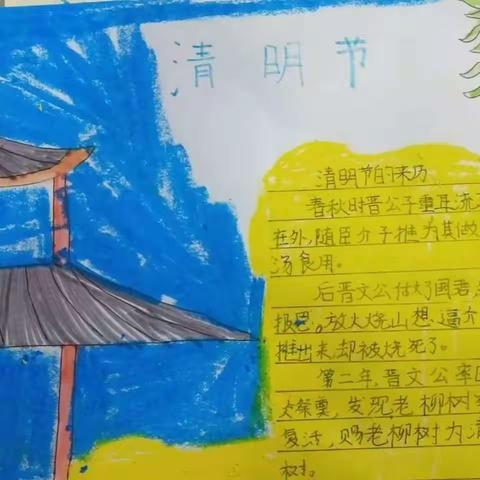 清明节
清明节的来历
春秋时晋公子重耳流
在外,随臣介子推为其做
汤食用。
后晋文公做好国君
报恩。放火烧山想逼介
推出来,却被烧死了。
第二年,晋文公率
大祭奠,发现老柳树
复活,赐老柳树为清
树。